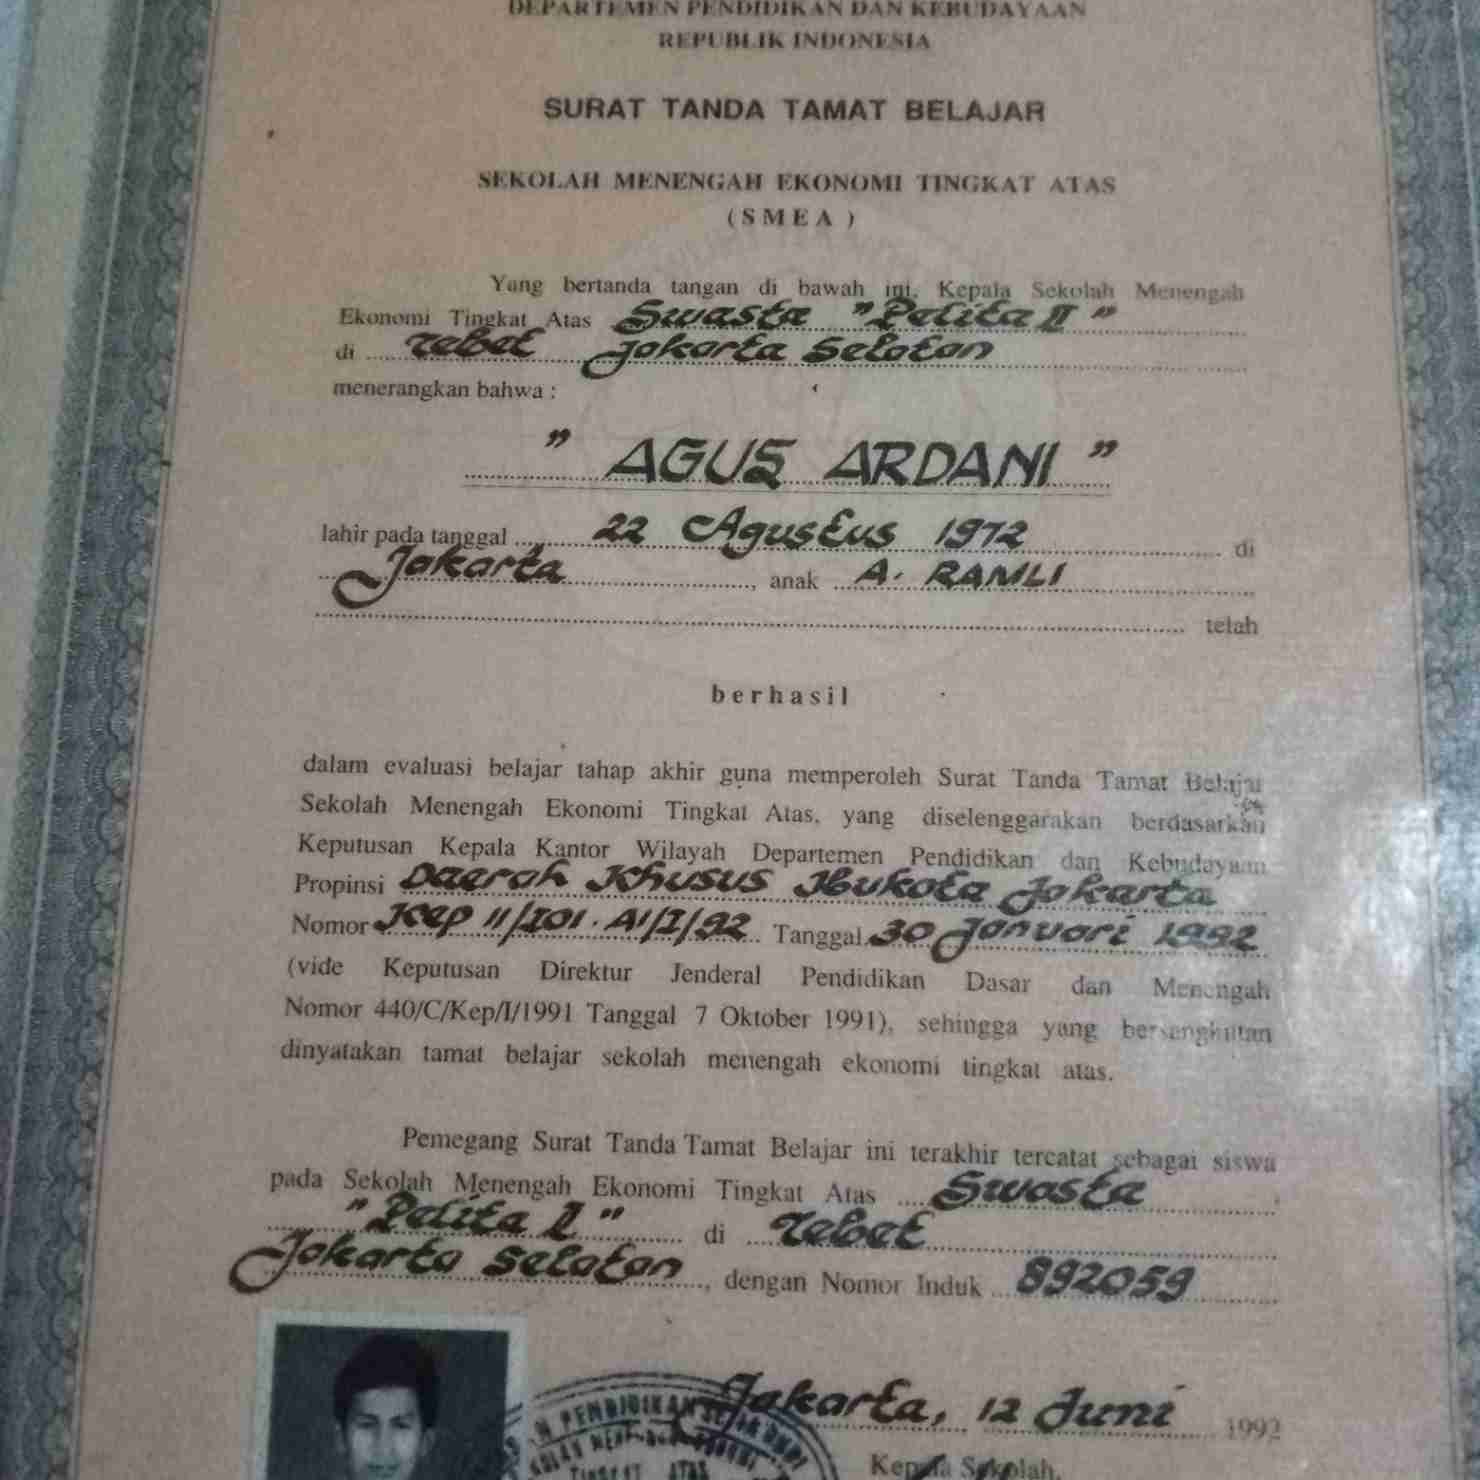 DEPARTEMEN PENDIDIKAN DAN KEBUDAYAAN
REPUBLIK INDONESIA
SURAT TANDA TAMAT BELAJAR
SEKOLAH MENENGAH EKONOMI TINGKAT ATAS
( S M E A )
Yang bertanda tangan di bawah ini, Kepala Sekolah Menengah
Ekonomi Tingkat Atas Swasta "Pelita II"
di Tebet Jakarta Selatan
menerangkan bahwa :
" AGUS ARDANI "
lahir pada tanggal 22 Agustus 1972 di
Jakarta, anak A. RAMLI
telah
berhasil
dalam evaluasi belajar tahap akhir guna memperoleh Surat Tanda Tamat Belajar
Sekolah Menengah Ekonomi Tingkat Atas, yang diselenggarakan berdasarkan
Keputusan Kepala Kantor Wilayah Departemen Pendidikan dan Kebudayaan
Propinsi Daerah Khusus Ibukota Jakarta
Nomor Kep 11/I01.A1/I/92 Tanggal 30 Januari 1992
(vide Keputusan Direktur Jenderal Pendidikan Dasar dan Menengah
Nomor 440/C/Kep/I/1991 Tanggal 7 Oktober 1991), sehingga yang bersangkutan
dinyatakan tamat belajar sekolah menengah ekonomi tingkat atas.
Pemegang Surat Tanda Tamat Belajar ini terakhir tercatat sebagai siswa
pada Sekolah Menengah Ekonomi Tingkat Atas Swasta
"Pelita II" di Tebet
Jakarta Selatan, dengan Nomor Induk 892059
Jakarta, 12 Juni 1992
Kepala Sekolah,
PENDIDIKAN
TINGKAT ATAS